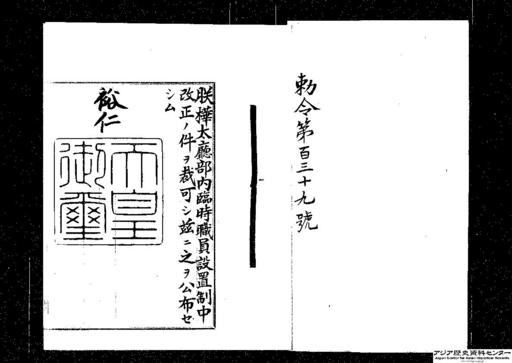 勅令第百三十九號
朕樺太廳部内臨時職員設置制中
改正ノ件ヲ裁可シ茲ニ之ヲ公布セ
シム
裕仁
天皇
御璽
アジア歴史資料センター
Japan Center for Asian Historical Records